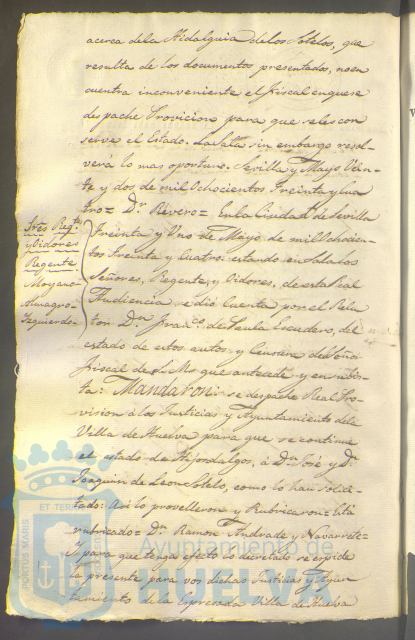 acerca dela Hidalguia delos Sotelos, que
resulta de los documentos presentados, no en
cuentra inconveniente el fiscal en que se
despache Provicion para que seles con
serve el Estado. La Sala sin embargo resol
verá lo mas oportuno. Sevilla y Mayo Vein-
te y dos de mil Ochocientos Treinta y Cua
tro= Dr. Rivero= En la Ciudad de Sevilla
Sres Reg.te
y Oidores
Regente
Moyano
Almagro
Izquierdo
Treinta y Uno de Mayo de mil Ochocien-
tos Treinta y Cuatro: estando en Sala los
Señores, Regente, y Oidores, de esta Real
Audiencia se dió Cuenta por el Rela
tor Dn. Franco. de Paula Escudero, del
estado de estos autos, y Censura del Señor
Fiscal de S.M. que antecede y en su vis-
ta: Mandaron: se despache Real Pro-
vision á los Justicias y Ayuntamiento dela
Villa de Huelva para que se continue
el estado de Hijosdalgos, á Dn. José y Dn.
Joaquin de Leon Sotelo, como lo han solici-
tado: Asi lo provelleron y Rubricaron= Está
rubricado= Dn. Ramon Andrade y Navarrete=
Y para que tenga efecto lo decretado se expide
la presente para vos dichas Justicias y Ayun
tamiento de la Expresada Villa de Huelva
PORTUS MARIS
ET TERRÆ
Ayuntamiento de
HUELVA